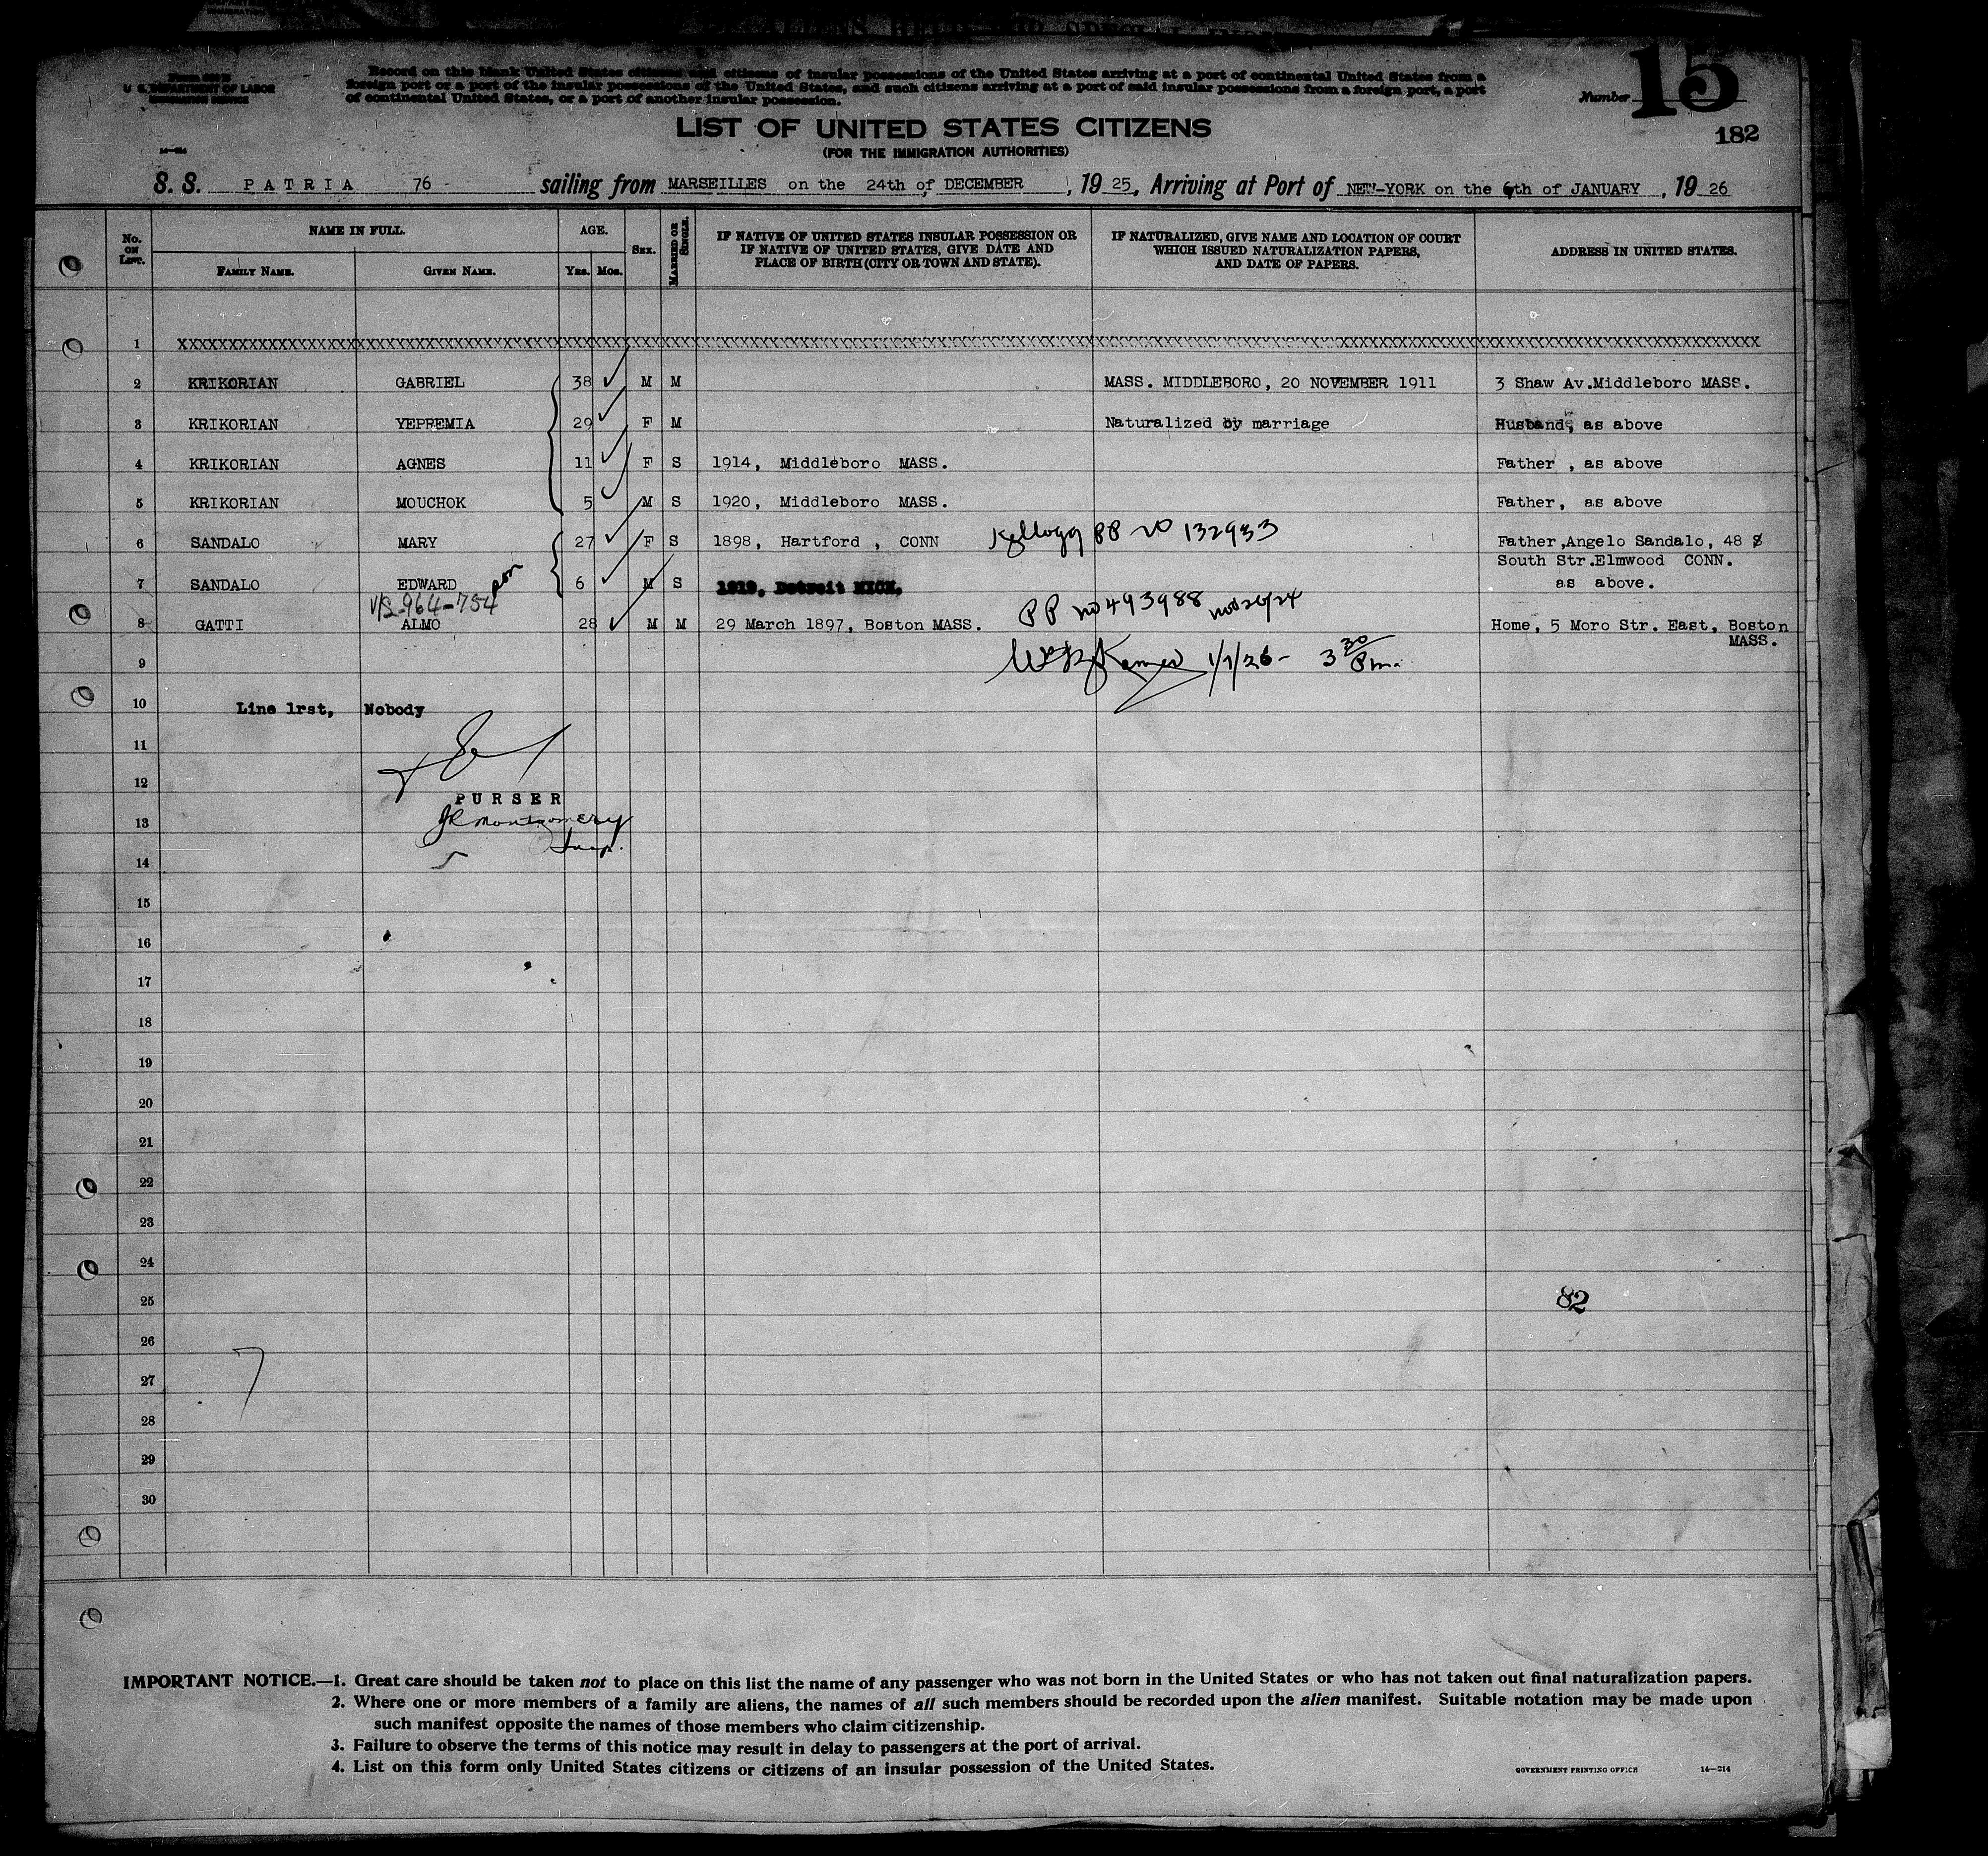 U. S. DEPARTMENT OF LABOR
IMMIGRATION SERVICE
Record on this blank United States citizens and citizens of insular possessions of the United States arriving at a port of continental United States from a
foreign port or a port of the insular possessions of the United States, and such citizens arriving at a port of said insular possessions from a foreign port, a port
of continental United States, or a port of another insular possession.
Number 15
182
LIST OF UNITED STATES CITIZENS
(FOR THE IMMIGRATION AUTHORITIES)
S. S. PATRIA 76 - sailing from MARSEILLES on the 24th of DECEMBER, 19 25, Arriving at Port of NEW-YORK on the 6th of JANUARY, 19 26
No. ON LIST. NAME IN FULL. FAMILY NAME. GIVEN NAME. AGE. YRS. MOS. SEX. MARRIED OR SINGLE. IF NATIVE OF UNITED STATES INSULAR POSSESSION OR IF NATIVE OF UNITED STATES, GIVE DATE AND PLACE OF BIRTH (CITY OR TOWN AND STATE). IF NATURALIZED, GIVE NAME AND LOCATION OF COURT WHICH ISSUED NATURALIZATION PAPERS, AND DATE OF PAPERS. ADDRESS IN UNITED STATES.
1
2 KRIKORIAN GABRIEL 38 M M MASS. MIDDLEBORO, 20 NOVEMBER 1911 3 Shaw Av.Middleboro MASS.
3 KRIKORIAN YEPREMIA 29 F M Naturalized by marriage Husband, as above
4 KRIKORIAN AGNES 11 F S 1914, Middleboro MASS. Father , as above
5 KRIKORIAN MOUCHOK 5 M S 1920, Middleboro MASS. Father, as above
6 SANDALO MARY 27 F S 1898, Hartford , CONN Kellogg PP no 132933 Father,Angelo Sandalo, 48
South Str.Elmwood CONN.
7 SANDALO EDWARD son 6 M S 1919, Detroit MICH. as above.
V/S-964-754
PP no 493988 nov 26/24
8 GATTI ALMO 28 M M 29 March 1897, Boston MASS. Home, 5 Moro Str. East, Boston
MASS.
9 1/7/26- 3 30/Pm.
10 Line 1rst, Nobody
11
12
PURSER
13 JR Montgomery
Insp.
14
15
16
17
18
19
20
21
22
23
24
25 82
26
27
28
29
30
7
IMPORTANT NOTICE.—1. Great care should be taken not to place on this list the name of any passenger who was not born in the United States or who has not taken out final naturalization papers.
2. Where one or more members of a family are aliens, the names of all such members should be recorded upon the alien manifest. Suitable notation may be made upon
such manifest opposite the names of those members who claim citizenship.
3. Failure to observe the terms of this notice may result in delay to passengers at the port of arrival.
4. List on this form only United States citizens or citizens of an insular possession of the United States.
GOVERNMENT PRINTING OFFICE 14—214